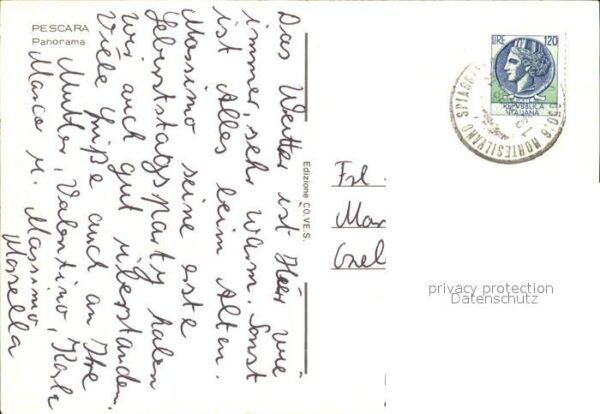 PESCARA
Panorama
Das Wetter ist Hier wie
immer, sehr warm. Sonst
ist Alles beim Alten.
Massimo seine erste
Gebürtstagsparty haben
wir auch gut überstanden.
Viele Grüße auch an Ihre
Mutter, Valentino, Karla
Marco u. Massimo
Marsella
Edizione CO.VE.S.
LIRE 120
REPVBBLICA
ITALIANA
65016 MONTESILVANO SPIAGGIA
Frl.
Mar
privacy protection
Datenschutz